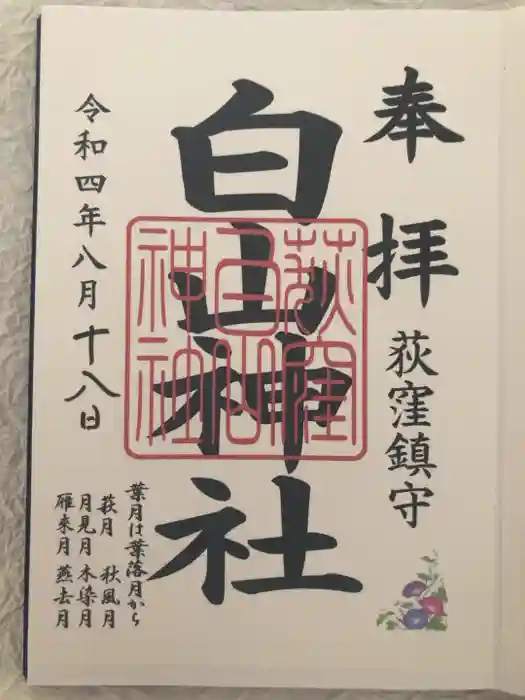 奉拝
荻窪鎮守
白山神社
荻窪
白山
神社
令和四年八月十八日
葉月は葉落月から
萩月 秋風月
月見月 木染月
雁来月 燕去月